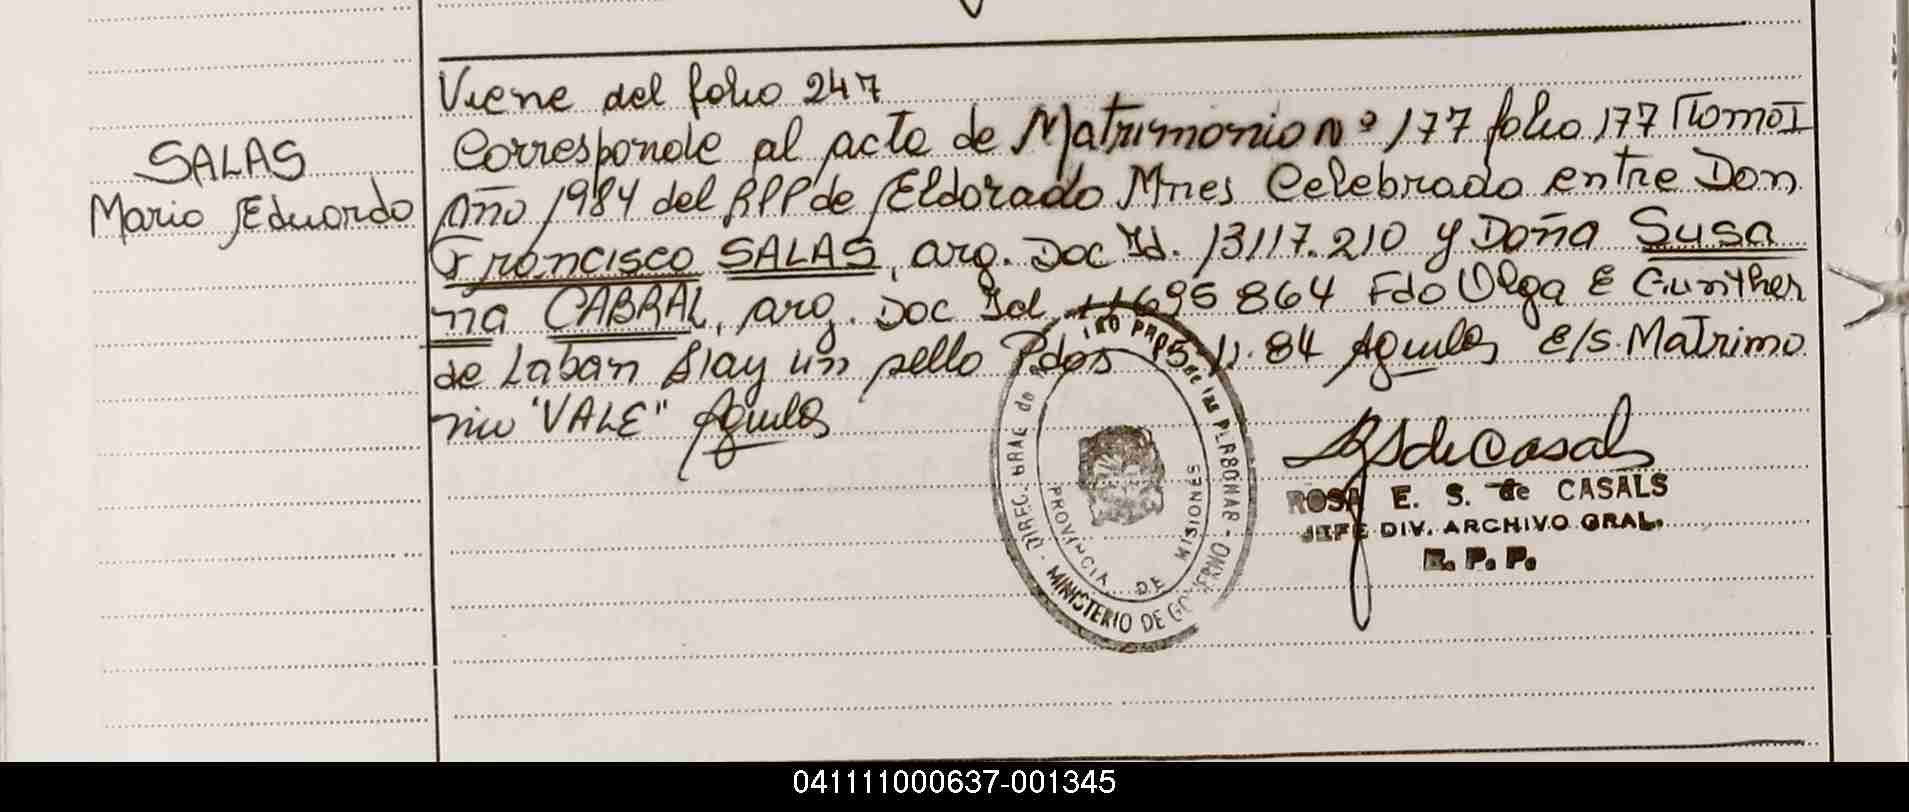 Viene del folio 247
SALAS
Mario Eduardo
Corresponde al acta de Matrimonio Nº 177 folio 177 Tomo I
Año 1984 del RPP de Eldorado Mnes Celebrado entre Don
Francisco SALAS, arg. Doc Id. 13117.210 y Doña Susa
na CABRAL, arg. Doc Id 695 864 Fdo Olga E Gunther
de Laban Hay un sello Pdos 84 Aguila e/s. Matrimo
nio "VALE" Aguila
DIREC. GRAL de
MINISTERIO DE GOBIERNO
PROVINCIA DE MISIONES
ROSA E. S. de CASALS
JEFE DIV. ARCHIVO GRAL.
R. P. P.
041111000637-001345